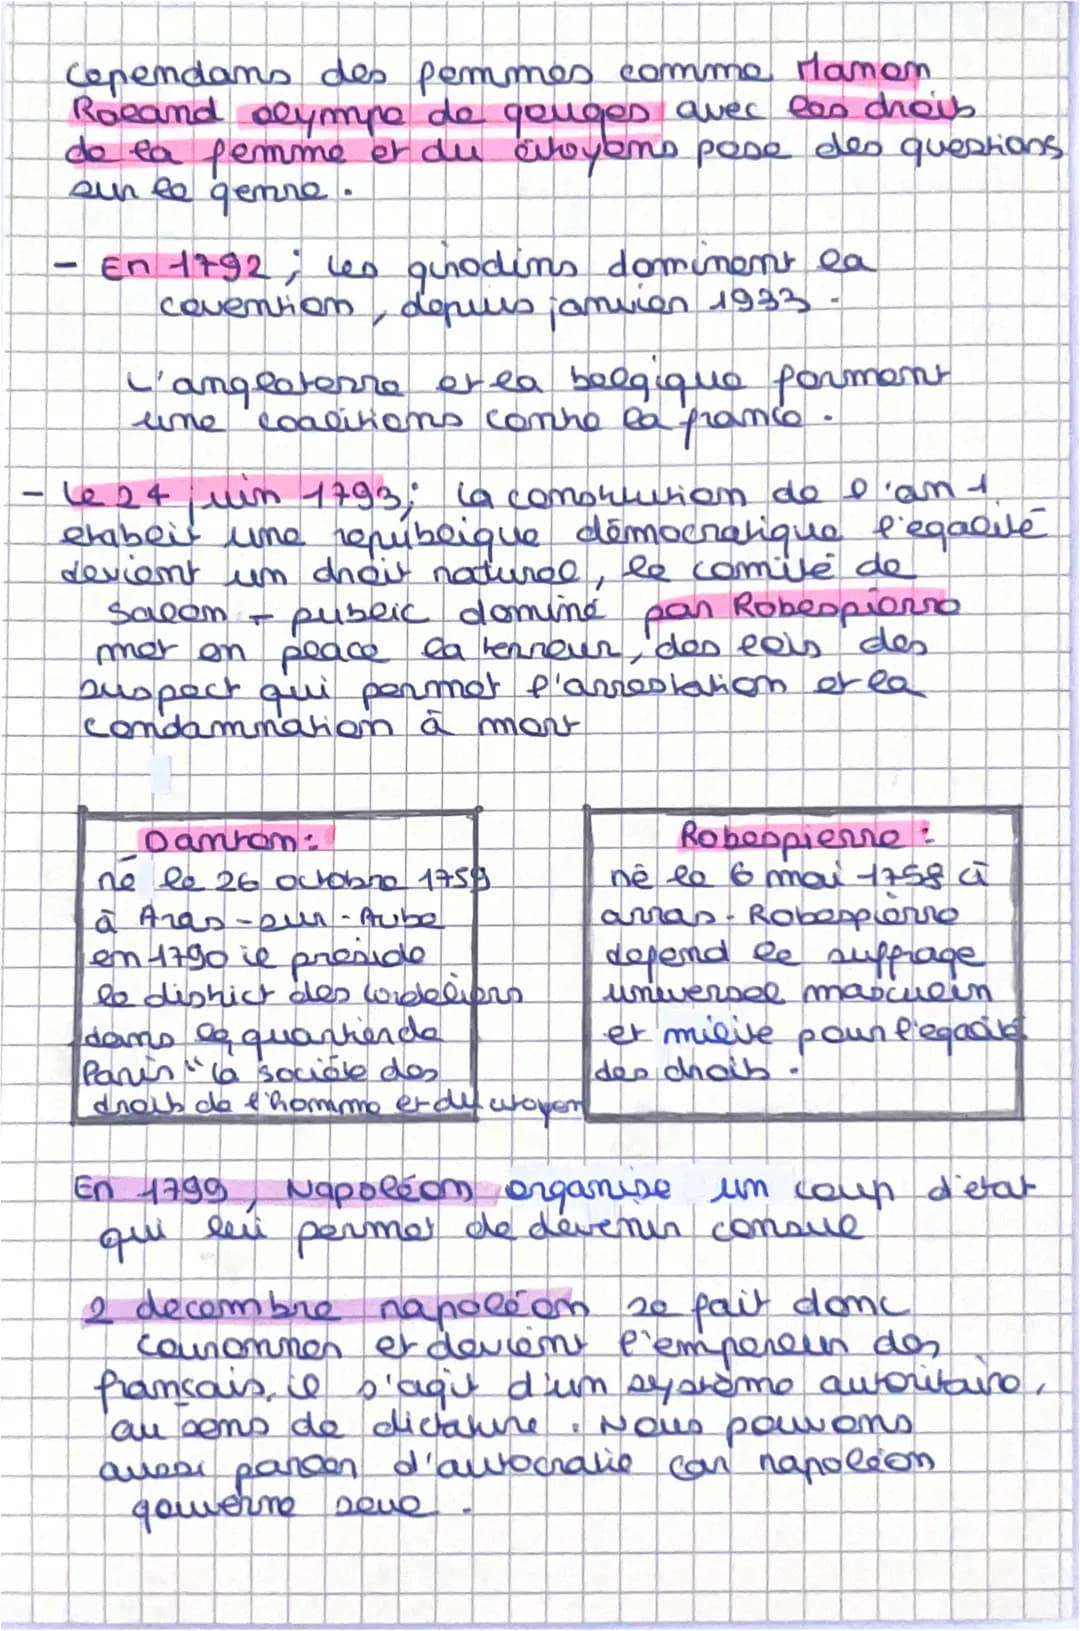 Cependans des femmes comme Manon
Roland olympe de gouges avec les droits
de la femme et du citoyens pose des questions
sur le genre.
- En 1792 ; les girodins dominent la
covention, depuis janvier 1933.
L'angleterre et la belgique forment
une coalitions contre la france.
- le 24 juin 1793; la constitution de l'an 1
etablit une republique démocratique l'egalité
devient un droit naturel, le comité de
salem - public dominé par Robespierre
met en place la terreur, des lois des
suspect qui permet l'arrestation et la
condamnation à mort
Danton:
né le 26 octobre 1759
à Aras-sur-Aube
en 1790 il préside
le district des cordeliers
dans le quartier de
Paris "la société des
droits de l'homme et du citoyen
Robespierre:
né le 6 mai 1758 à
arras. Robespierre
defend le suffrage
universel masculin
et milite pour l'egalité
des droits.
En 1799, Napoléon organise un coup d'etat
qui lui permet de devenir consul
2 decembre napoléon se fait donc
couronner et devient l'empereur des
français, il s'agit d'un système autoritaire,
au sens de dictature. Nous pouvons
aussi parler d'autocratie car napoléon
gouverne seul.